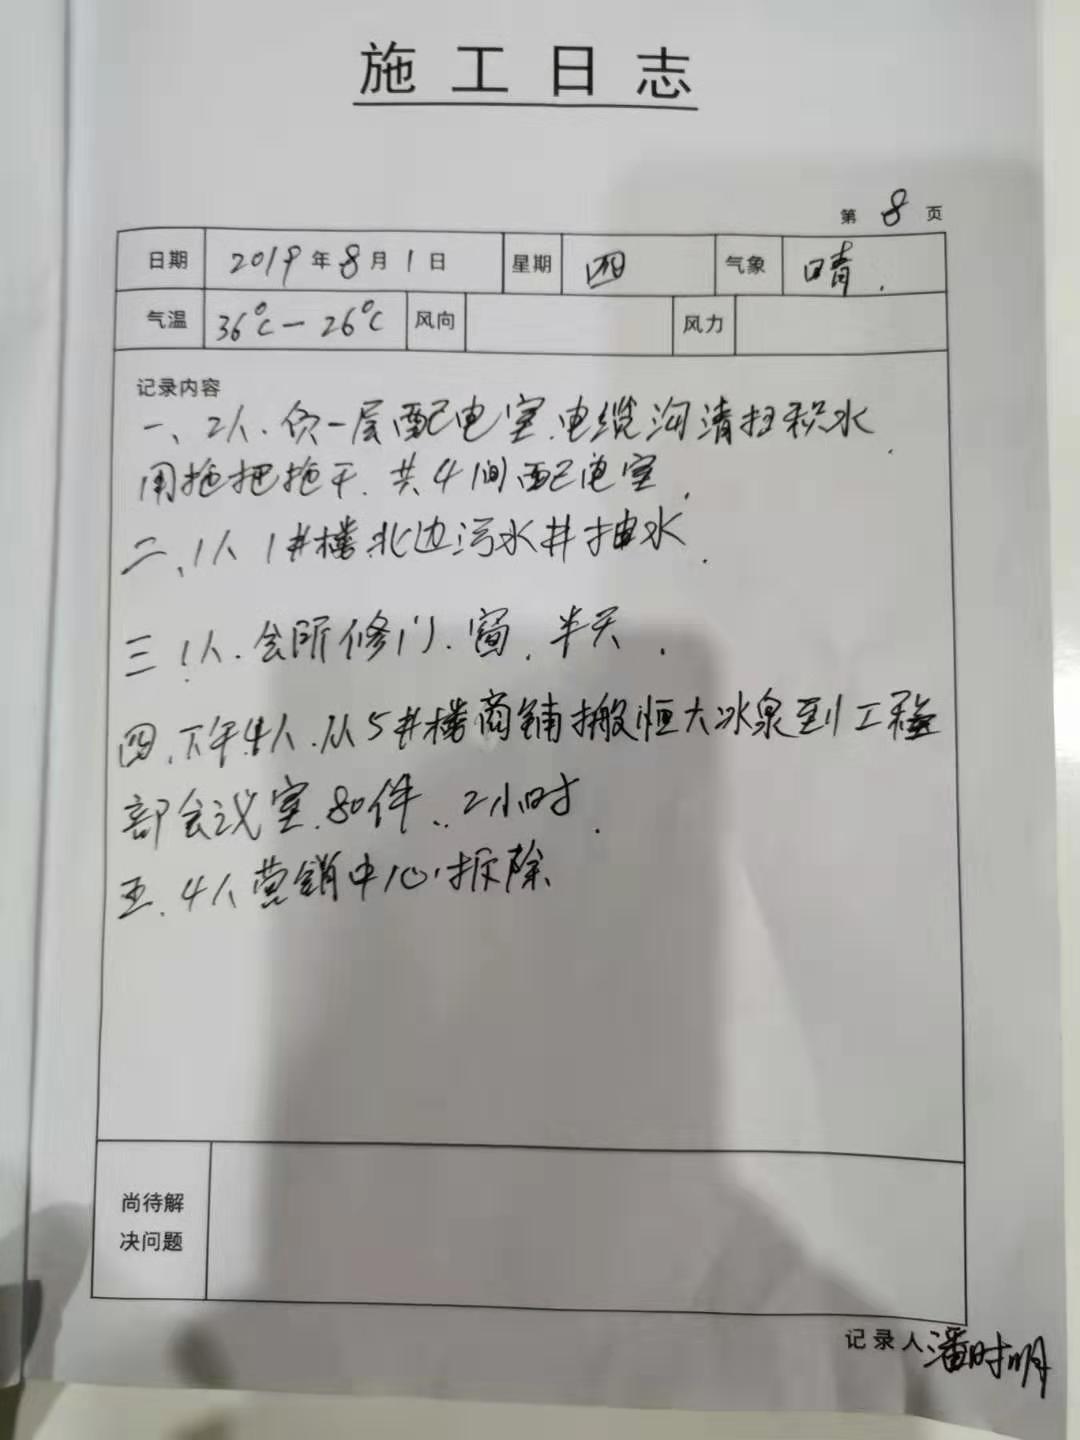 施工日志
第 8 页
日期 2019年8月1日 星期 四 气象 晴.
气温 36℃-26℃ 风向 风力
记录内容
一、2人.负一层配电室.电缆沟清扫积水.
用拖把拖干.共4间配电室.
二、1人 1#楼北边污水井抽水.
三 1人.会所修门.窗.半天.
四.下午4人.从5#楼商铺搬恒大冰泉到工程
部会议室.80件..2小时.
五.4人营销中心拆除
尚待解
决问题
记录人 潘时明